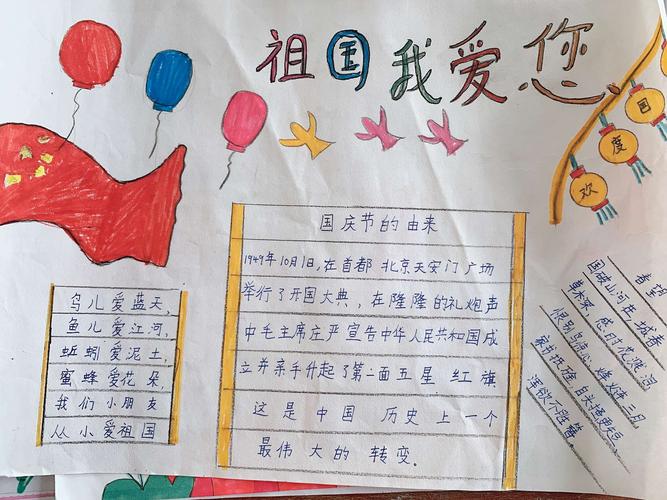 祖国我爱您
欢度国
国庆节的由来
1949年10月1日,在首都 北京天安门广场
举行了开国大典,在隆隆的礼炮声
中毛主席庄严宣告中华人民共和国成
立并亲手升起了第二面五星红旗
这是中国历史上一个
最伟大的转变。
鸟儿爱蓝天,
鱼儿爱江河,
蚯蚓爱泥土,
蜜蜂爱花朵,
我们小朋友
从小爱祖国
春望
国破山河在 城春
草木深,感时花溅泪
恨别鸟惊心 烽 三月
家书抵 白头搔更短
浑欲不胜簪